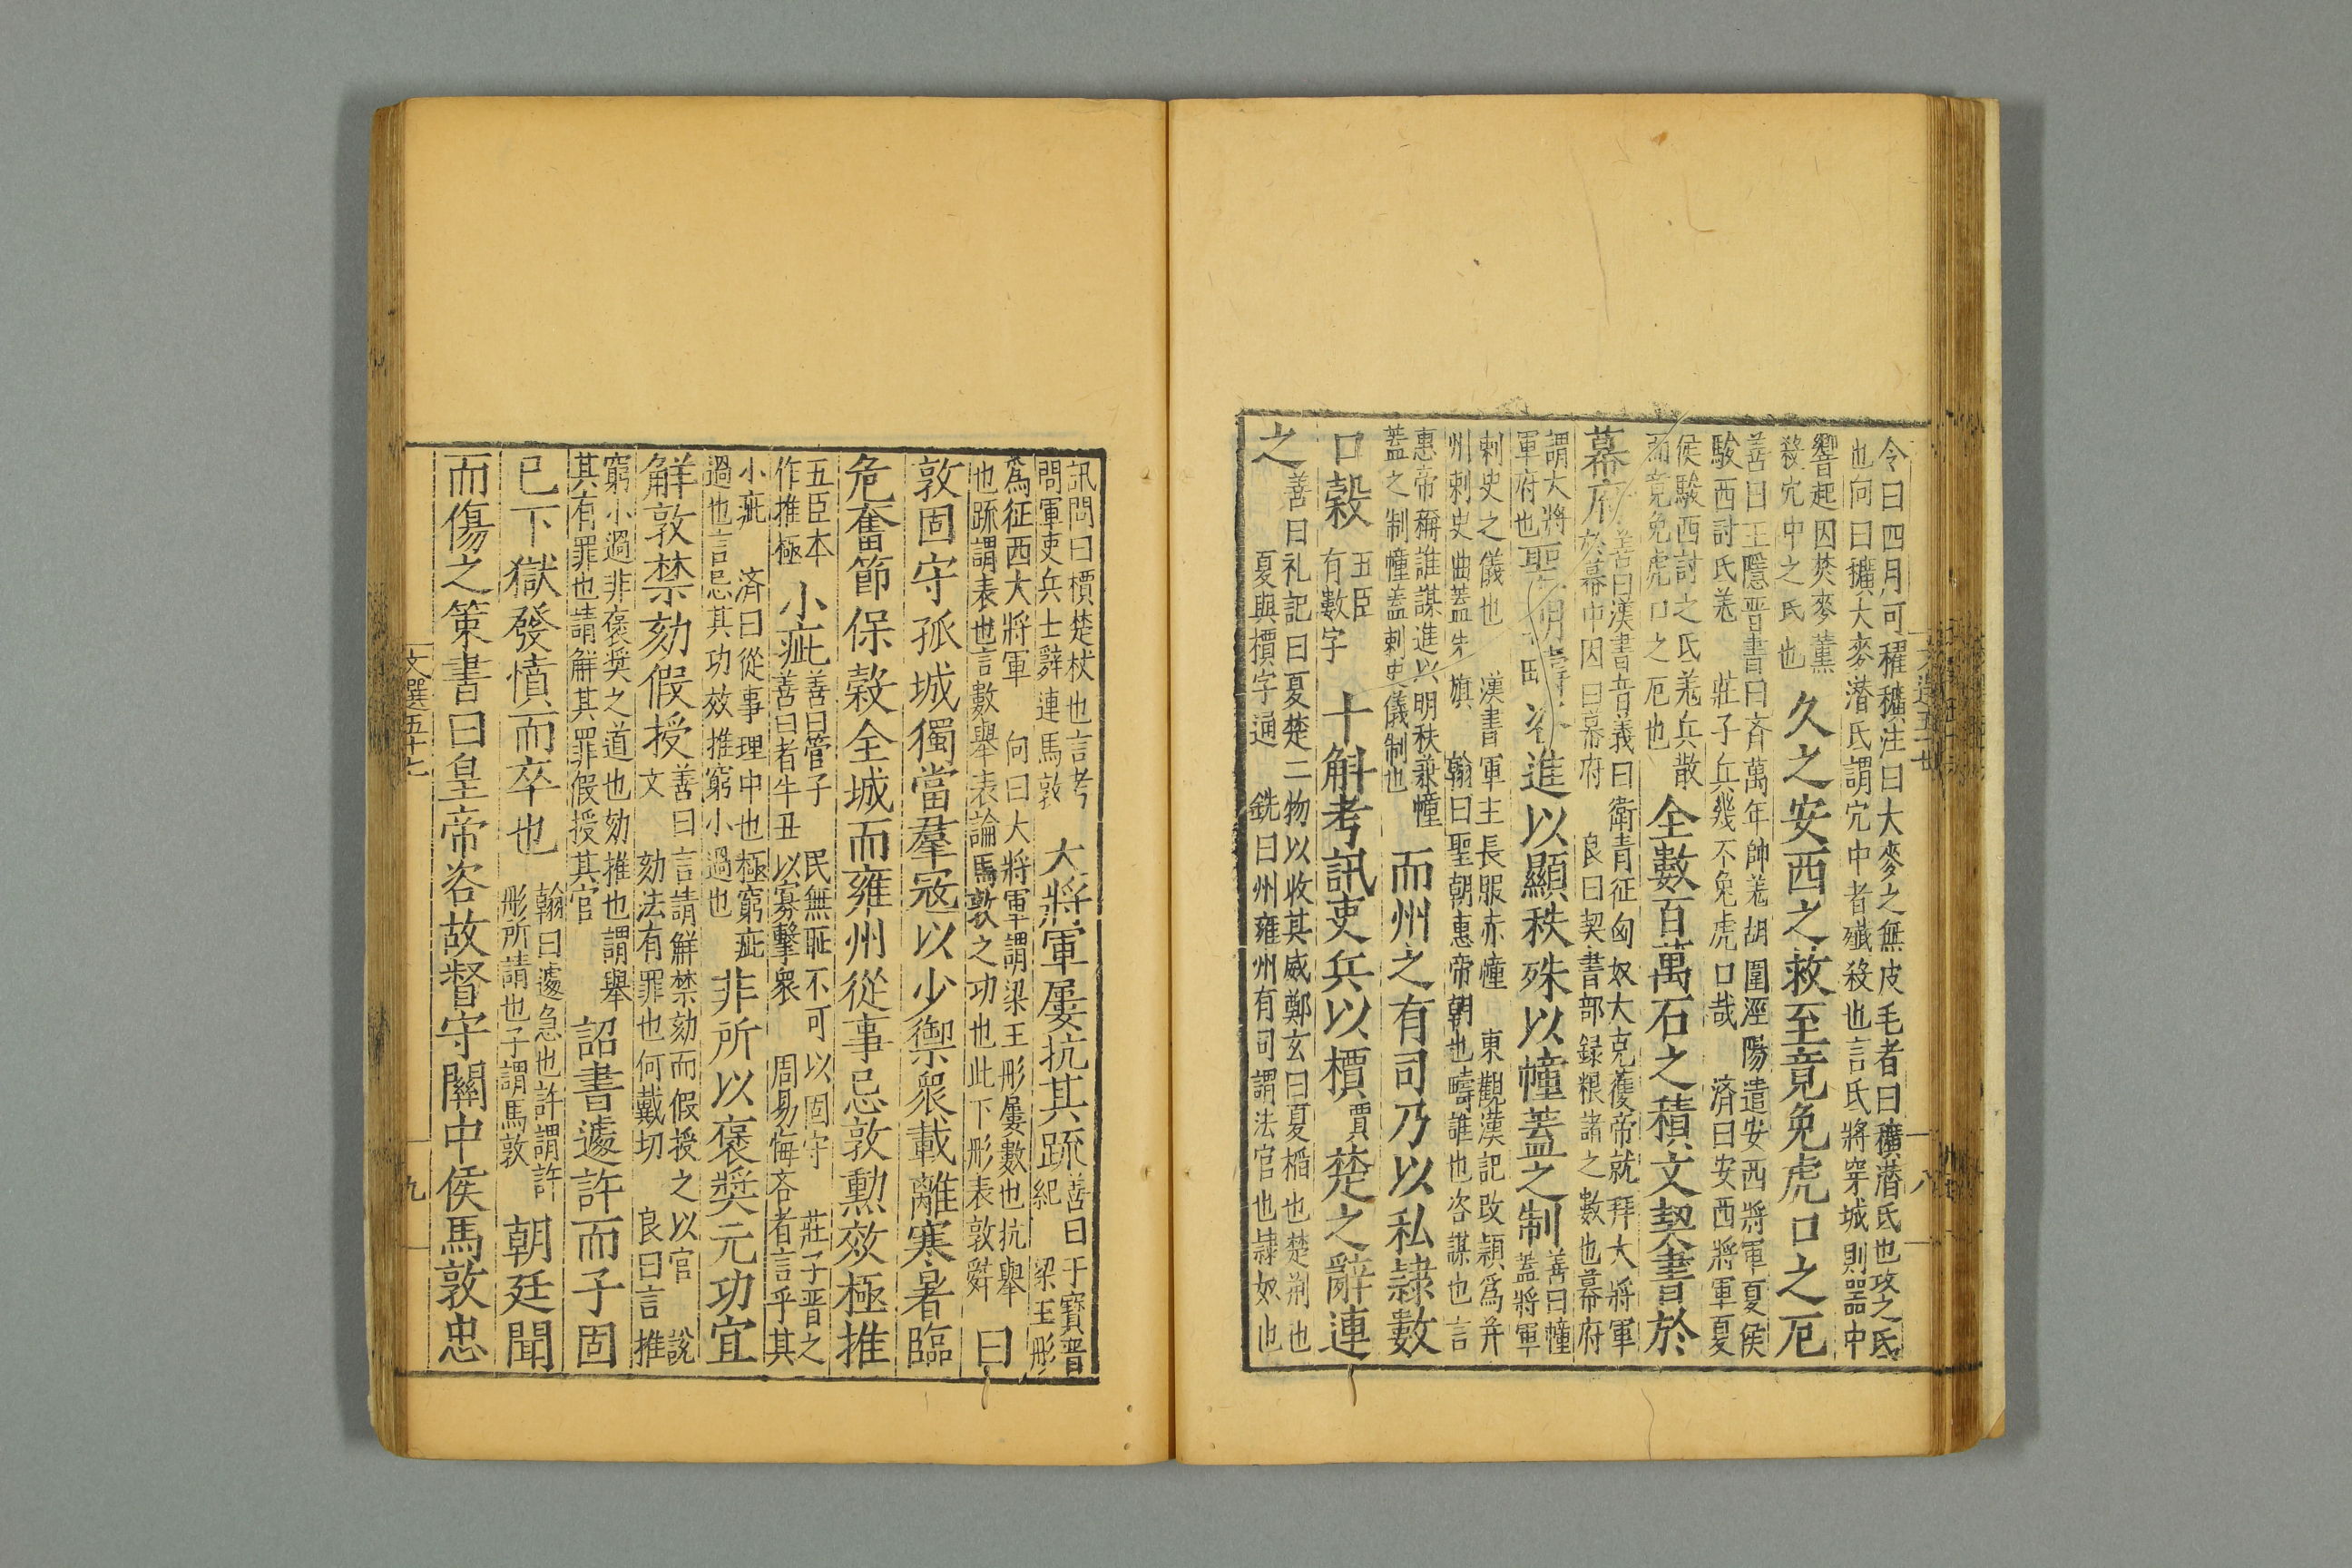 令曰四月可糴穬注曰大麥之無皮毛者曰穬潜氏也攻之氐
也向曰擴大麥潜氏謂宂中者殱殺也言氐將穿城則噐中
響起囚焚麥薰
殺宂中之氐也
久之安西之救至竟免虎口之厄
善曰王隱晉書曰斉萬年帥羗胡圍涇陽遣安西將軍夏侯
駿西討氐羗 莊子兵幾不免虎口哉 済曰安西將軍夏
侯駿西討之氐羗兵散
而竟免虎口之厄也
全數百萬石之積文契書於
幕府
善曰漢書音義曰衛青征匈奴大克獲帝就拜大將軍
於幕中因曰幕府 良曰契書部録粮諸之數也幕府
謂大將
軍府也
聖朝疇咨進以顯秩殊以幢蓋之制
善曰幢
蓋將軍
刺史之儀也 漢書軍主長服赤幢 東觀漢記改潁爲并
州刺史曲蓋朱旗 翰曰聖朝惠帝朝也疇誰也咨謀也言
惠帝稱誰謀進以明秩兼幢
蓋之制幢蓋刺史儀制也
而州之有司乃以私隷數
口穀
五臣
有數字
十斛考訊吏兵以檟賈楚之辭連
之
善曰礼記曰夏楚二物以收其威鄭玄曰夏榎也楚荊也
夏與檟字通 銑曰州雍州有司謂法官也隷奴也
文選五十七
八
訊問曰檟楚杖也言考
問軍吏兵士辭連馬敦
大將軍屢抗其疏
善曰于寶晋
紀 梁王彤
爲征西大將軍 向曰大將軍謂梁王彤屢數也抗舉
也疏謂表也言數舉表論馬敦之功也此下彤表敦辤
曰
敦固守孤城獨當羣寇以少禦衆載離寒暑臨
危奮節保穀全城而雍州從事忌敦勲效極推
五臣本
作推極
小疵
善曰管子 民無耻不可以固守 莊子晋之
善曰者牛丑 以寡擊衆 周易悔吝者言乎其
小疵 済曰從事理中也極窮疵
過也言忌其功效推窮小過也
非所以褒奨元功宜
解敦禁劾假授
善曰言請解禁劾而假授之以官 說
文 劾法有罪也何戴切 良曰言推
窮小過非褒奨之道也劾推也謂舉
其有罪也請解其罪假授其官
詔書遽許而子固
已下獄發憤而卒也
翰曰遽急也許謂許
彤所請也子謂馬敦
朝廷聞
而傷之策書曰皇帝咨故督守關中侯馬敦忠
文選五十七
九